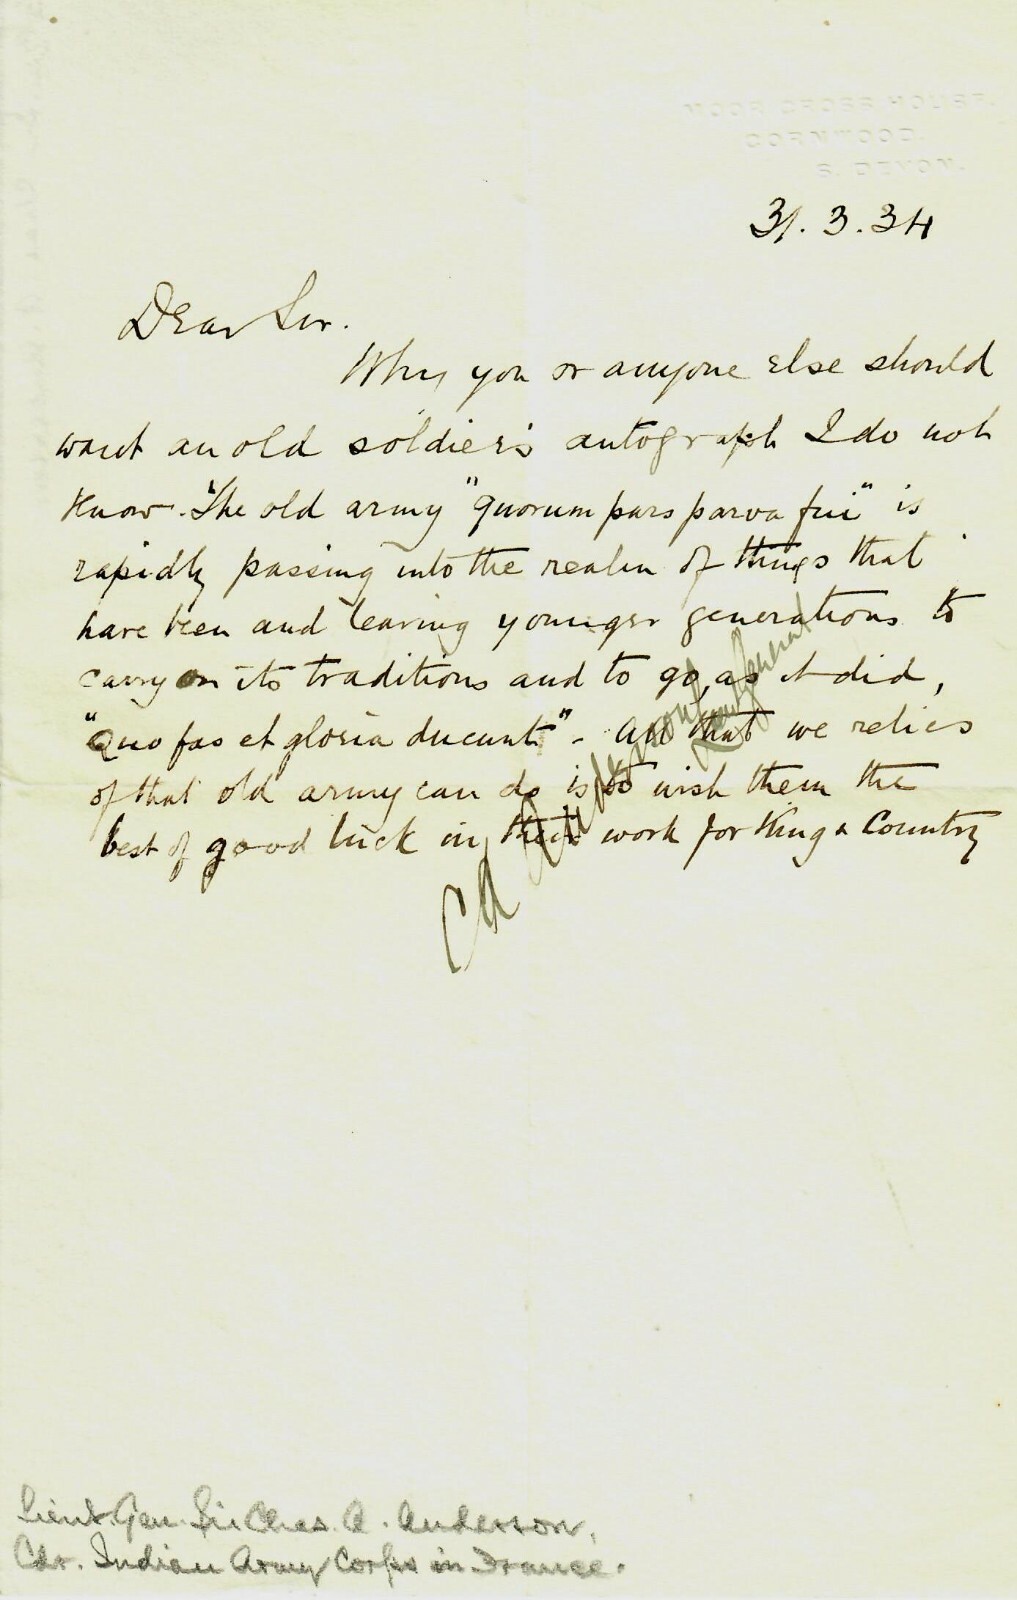 MOOR CROSS HOUSE.
CORNWOOD.
S. DEVON.
31. 3. 34
Dear Sir.
Why you or anyone else should
want an old soldier's autograph I do not
know. The old army "quorum pars parva fui" is
rapidly passing into the realm of things that
have been and leaving younger generations to
carry on its traditions and to go, as it did,
"Quo fas et gloria ducunt" - All that we relics
of that old army can do is to wish them the
best of good luck in their work for King & Country
CA Anderson
Lieut General
Lieut. Gen. Sir Chas. A. Anderson,
Cdr. Indian Army Corps in France.